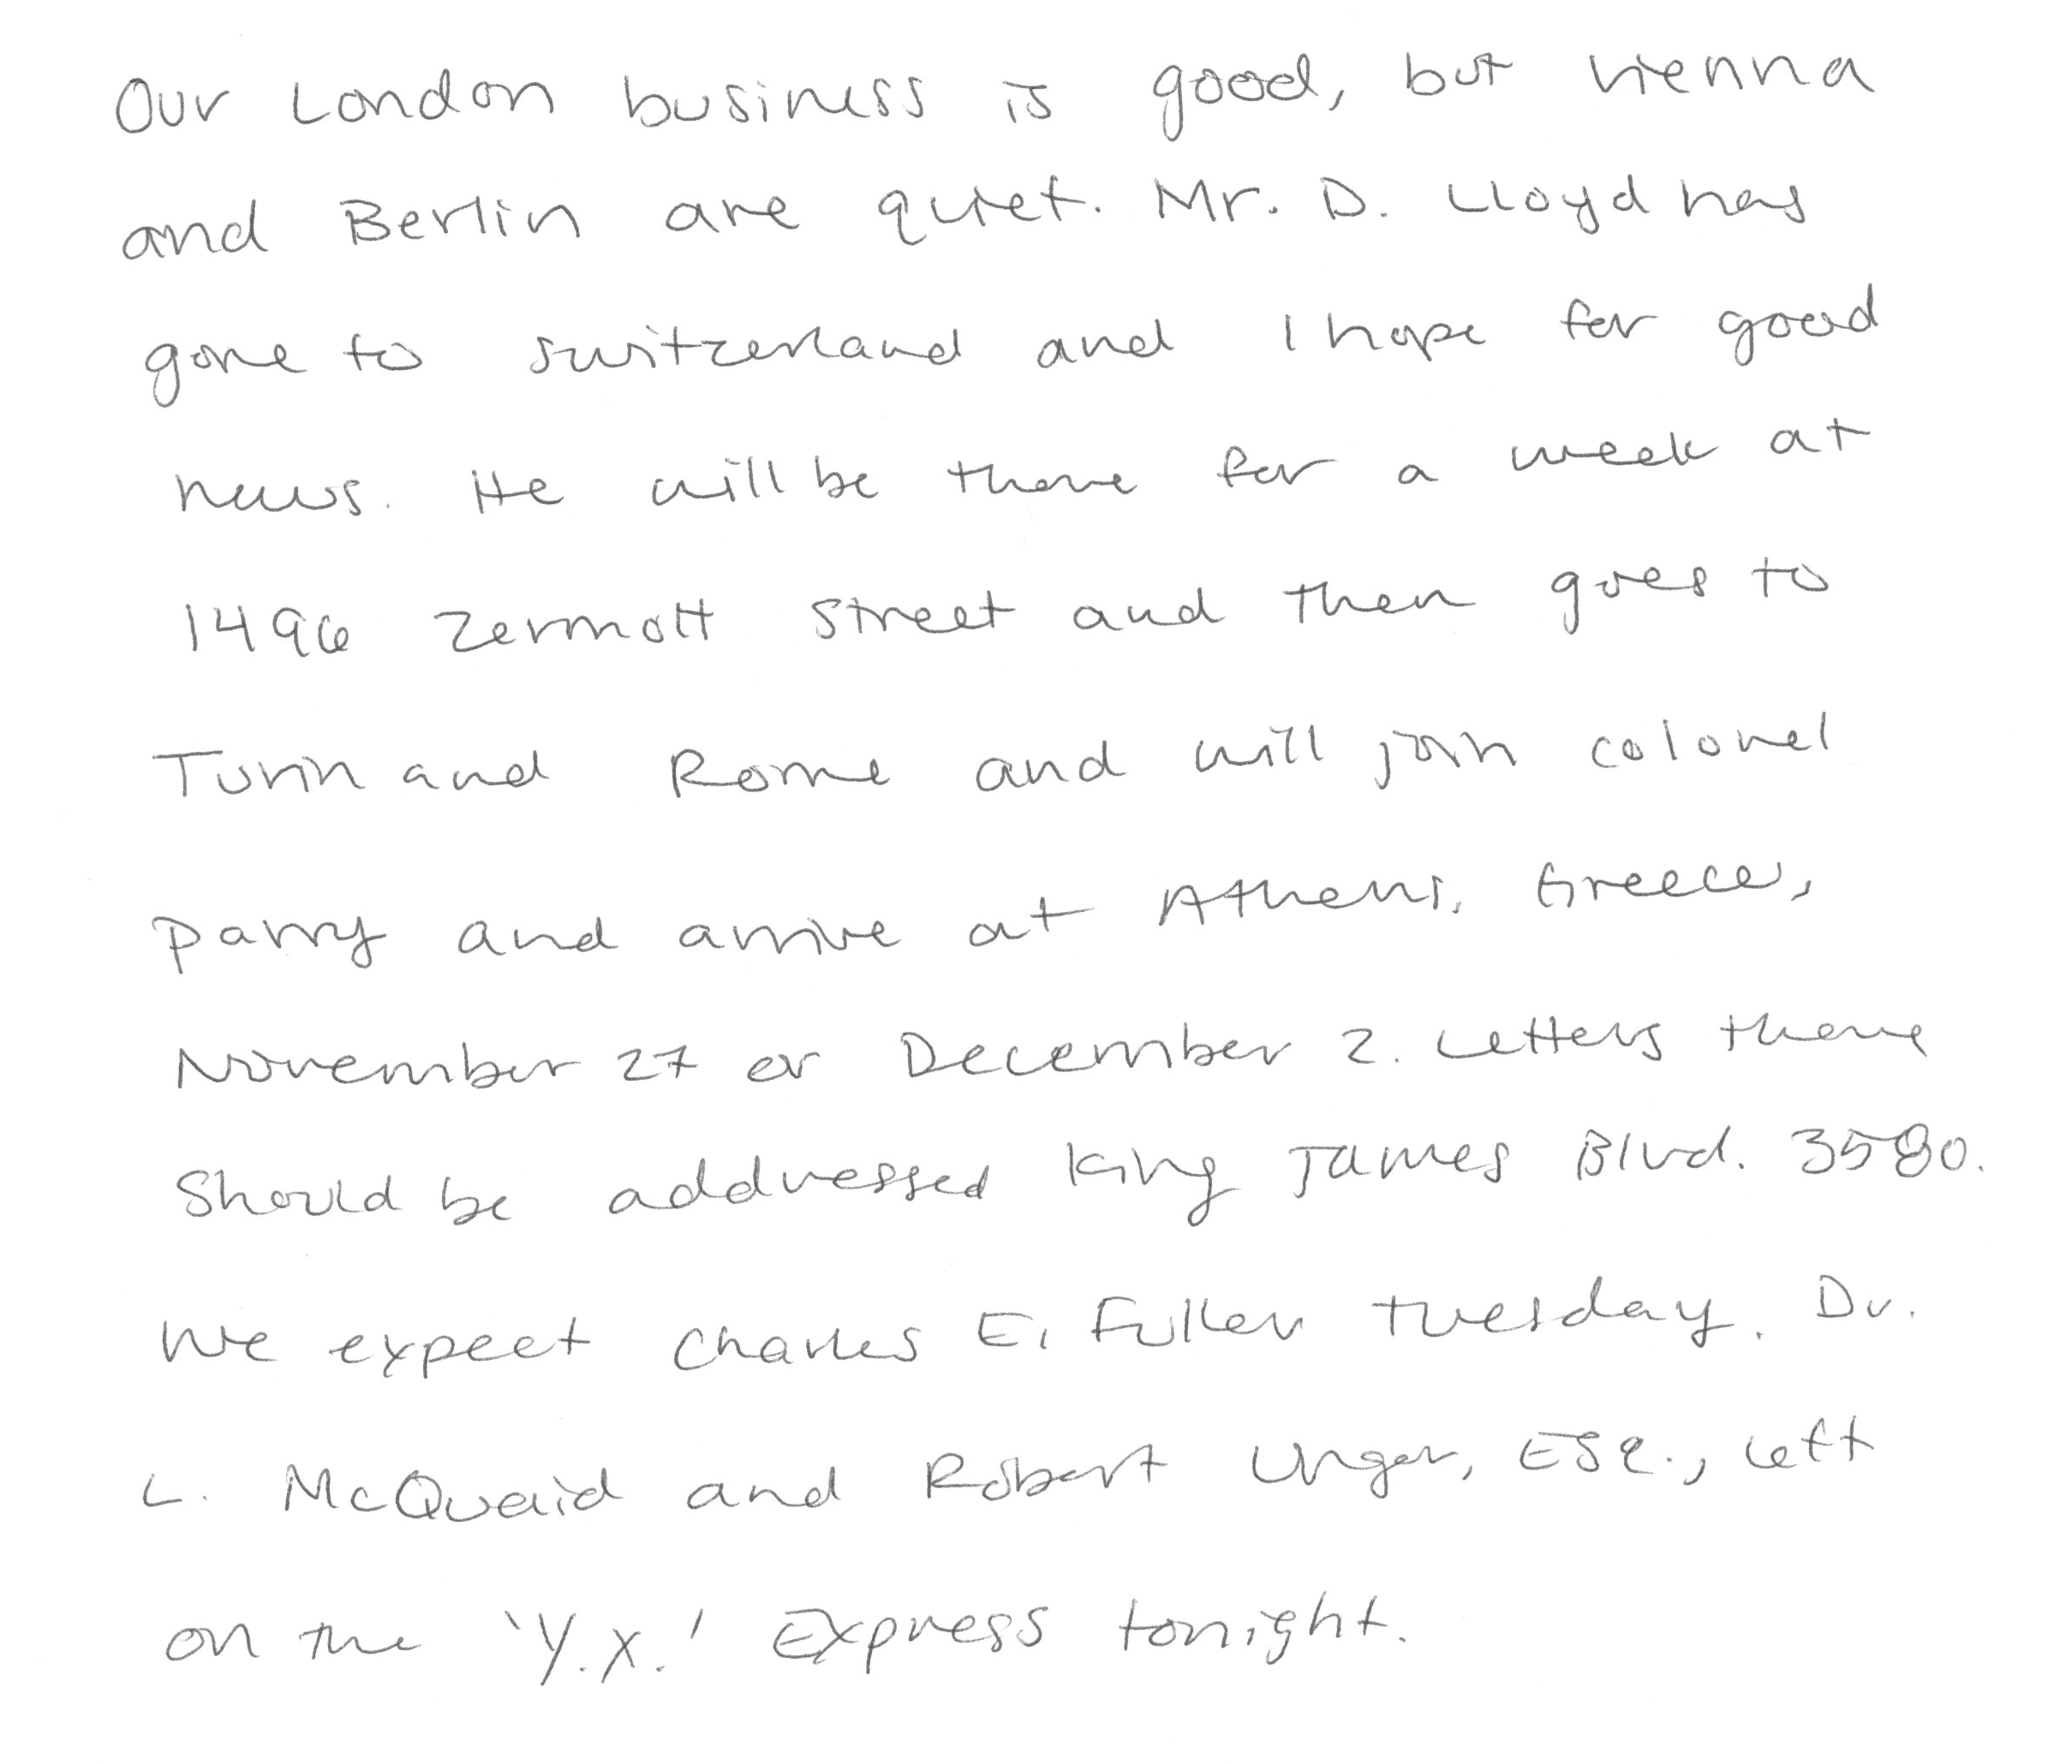 Our London business is good, but Vienna
and Berlin are quiet. Mr. D. Lloyd has
gone to Switzerland and I hope for good
news. He will be there for a week at
1496 Zermott Street and then goes to
Turin and Rome and will join Colonel
Parry and arrive at Athens, Greece,
November 27 or December 2. Letters there
should be addressed King James Blvd. 3580.
We expect Charles E. Fuller Tuesday. Dr.
L. McQuaid and Robert Unger, Esq., left
on the 'Y.X.' Express tonight.